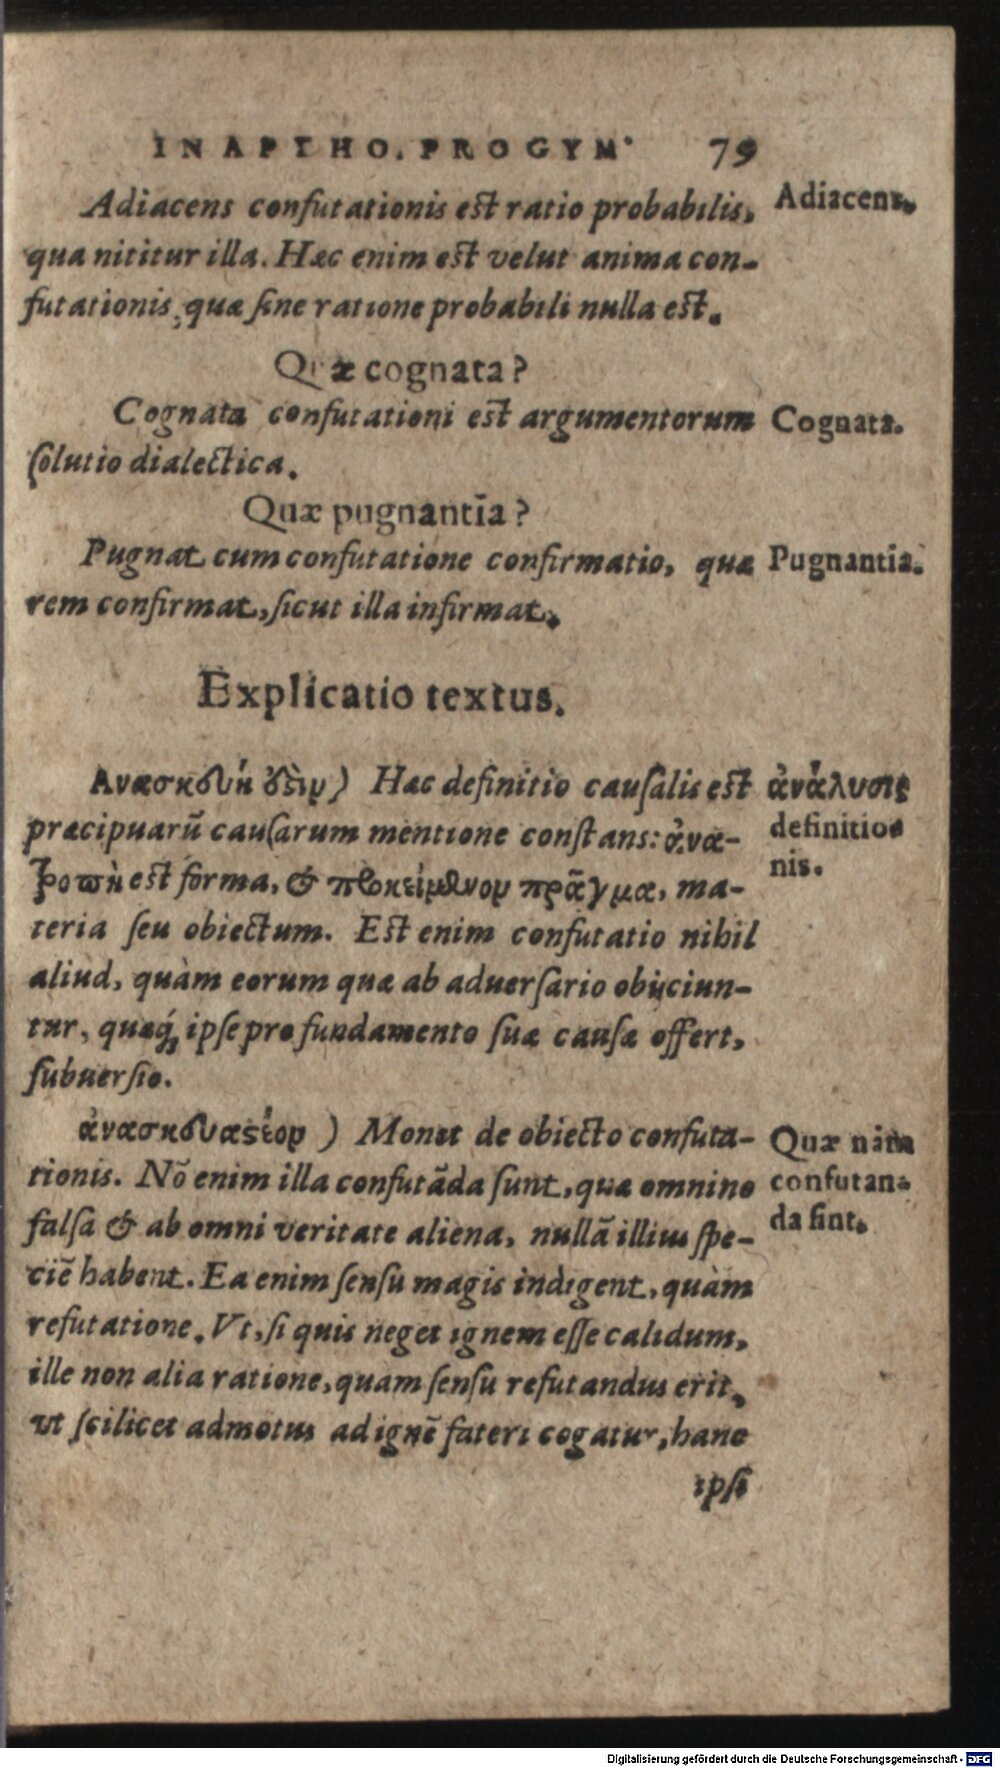 IN APTHO. PROGYM. 79
Adiacens confutationis est ratio probabilis, Adiacens.
qua nititur illa. Hæc enim est velut anima con-
futationis, quæ sine ratione probabili nulla est.
Quæ cognata?
Cognata confutationi est argumentorum Cognata.
solutio dialectica.
Quæ pugnantia?
Pugnat cum confutatione confirmatio, quæ Pugnantia.
rem confirmat, sicut illa infirmat.
Explicatio textus.
Ανασκευή ὅτιν) Hæc definitio causalis est ἀνάλυσις
præcipuarũ causarum mentione constans: ἀνα- definitio-
τροπὴ est forma, & προκείμενον πρᾶγμα, ma- nis.
teria seu obiectum. Est enim confutatio nihil
aliud, quàm eorum quæ ab aduersario obijciun-
tur, quæq́; ipse pro fundamento suæ causæ offert,
subuersio.
ἀνασκευαστέον ) Monet de obiecto confuta- Quæ nam
tionis. Nõ enim illa confutãda sunt, quæ omnino confutan-
falsa & ab omni veritate aliena, nullã illius spe- da sint.
ciẽ habent. Ea enim sensu magis indigent, quàm
refutatione. Vt, si quis neget ignem esse calidum,
ille non alia ratione, quam sensu refutandus erit,
ut scilicet admotus ad ignẽ fateri cogatur, hanc
ipsi
Digitalisierung gefördert durch die Deutsche Forschungsgemeinschaft - DFG